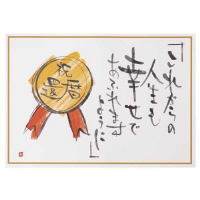 「これからの
人生も
幸せで
あふれます
ように」
祝
還暦